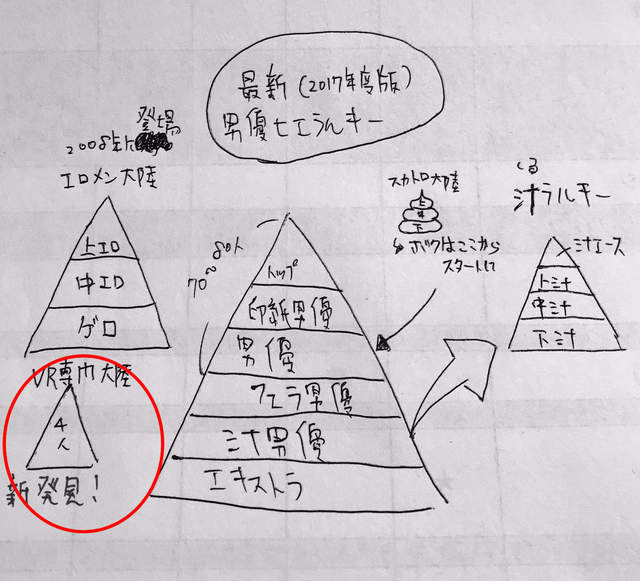 最新(2017年度版)
男優ヒエラルキー
2008年に登場
エロメン大陸
上エロ
中エロ
ゲロ
VR専門大陸
4人
新発見!
70〜80人
トップ
印紙男優
男優
フェラ男優
汁男優
エキストラ
スカトロ大陸
上
中
下
ボクはここから
スタートして
しる
汁ラルキー
汁エース
上汁
中汁
下汁